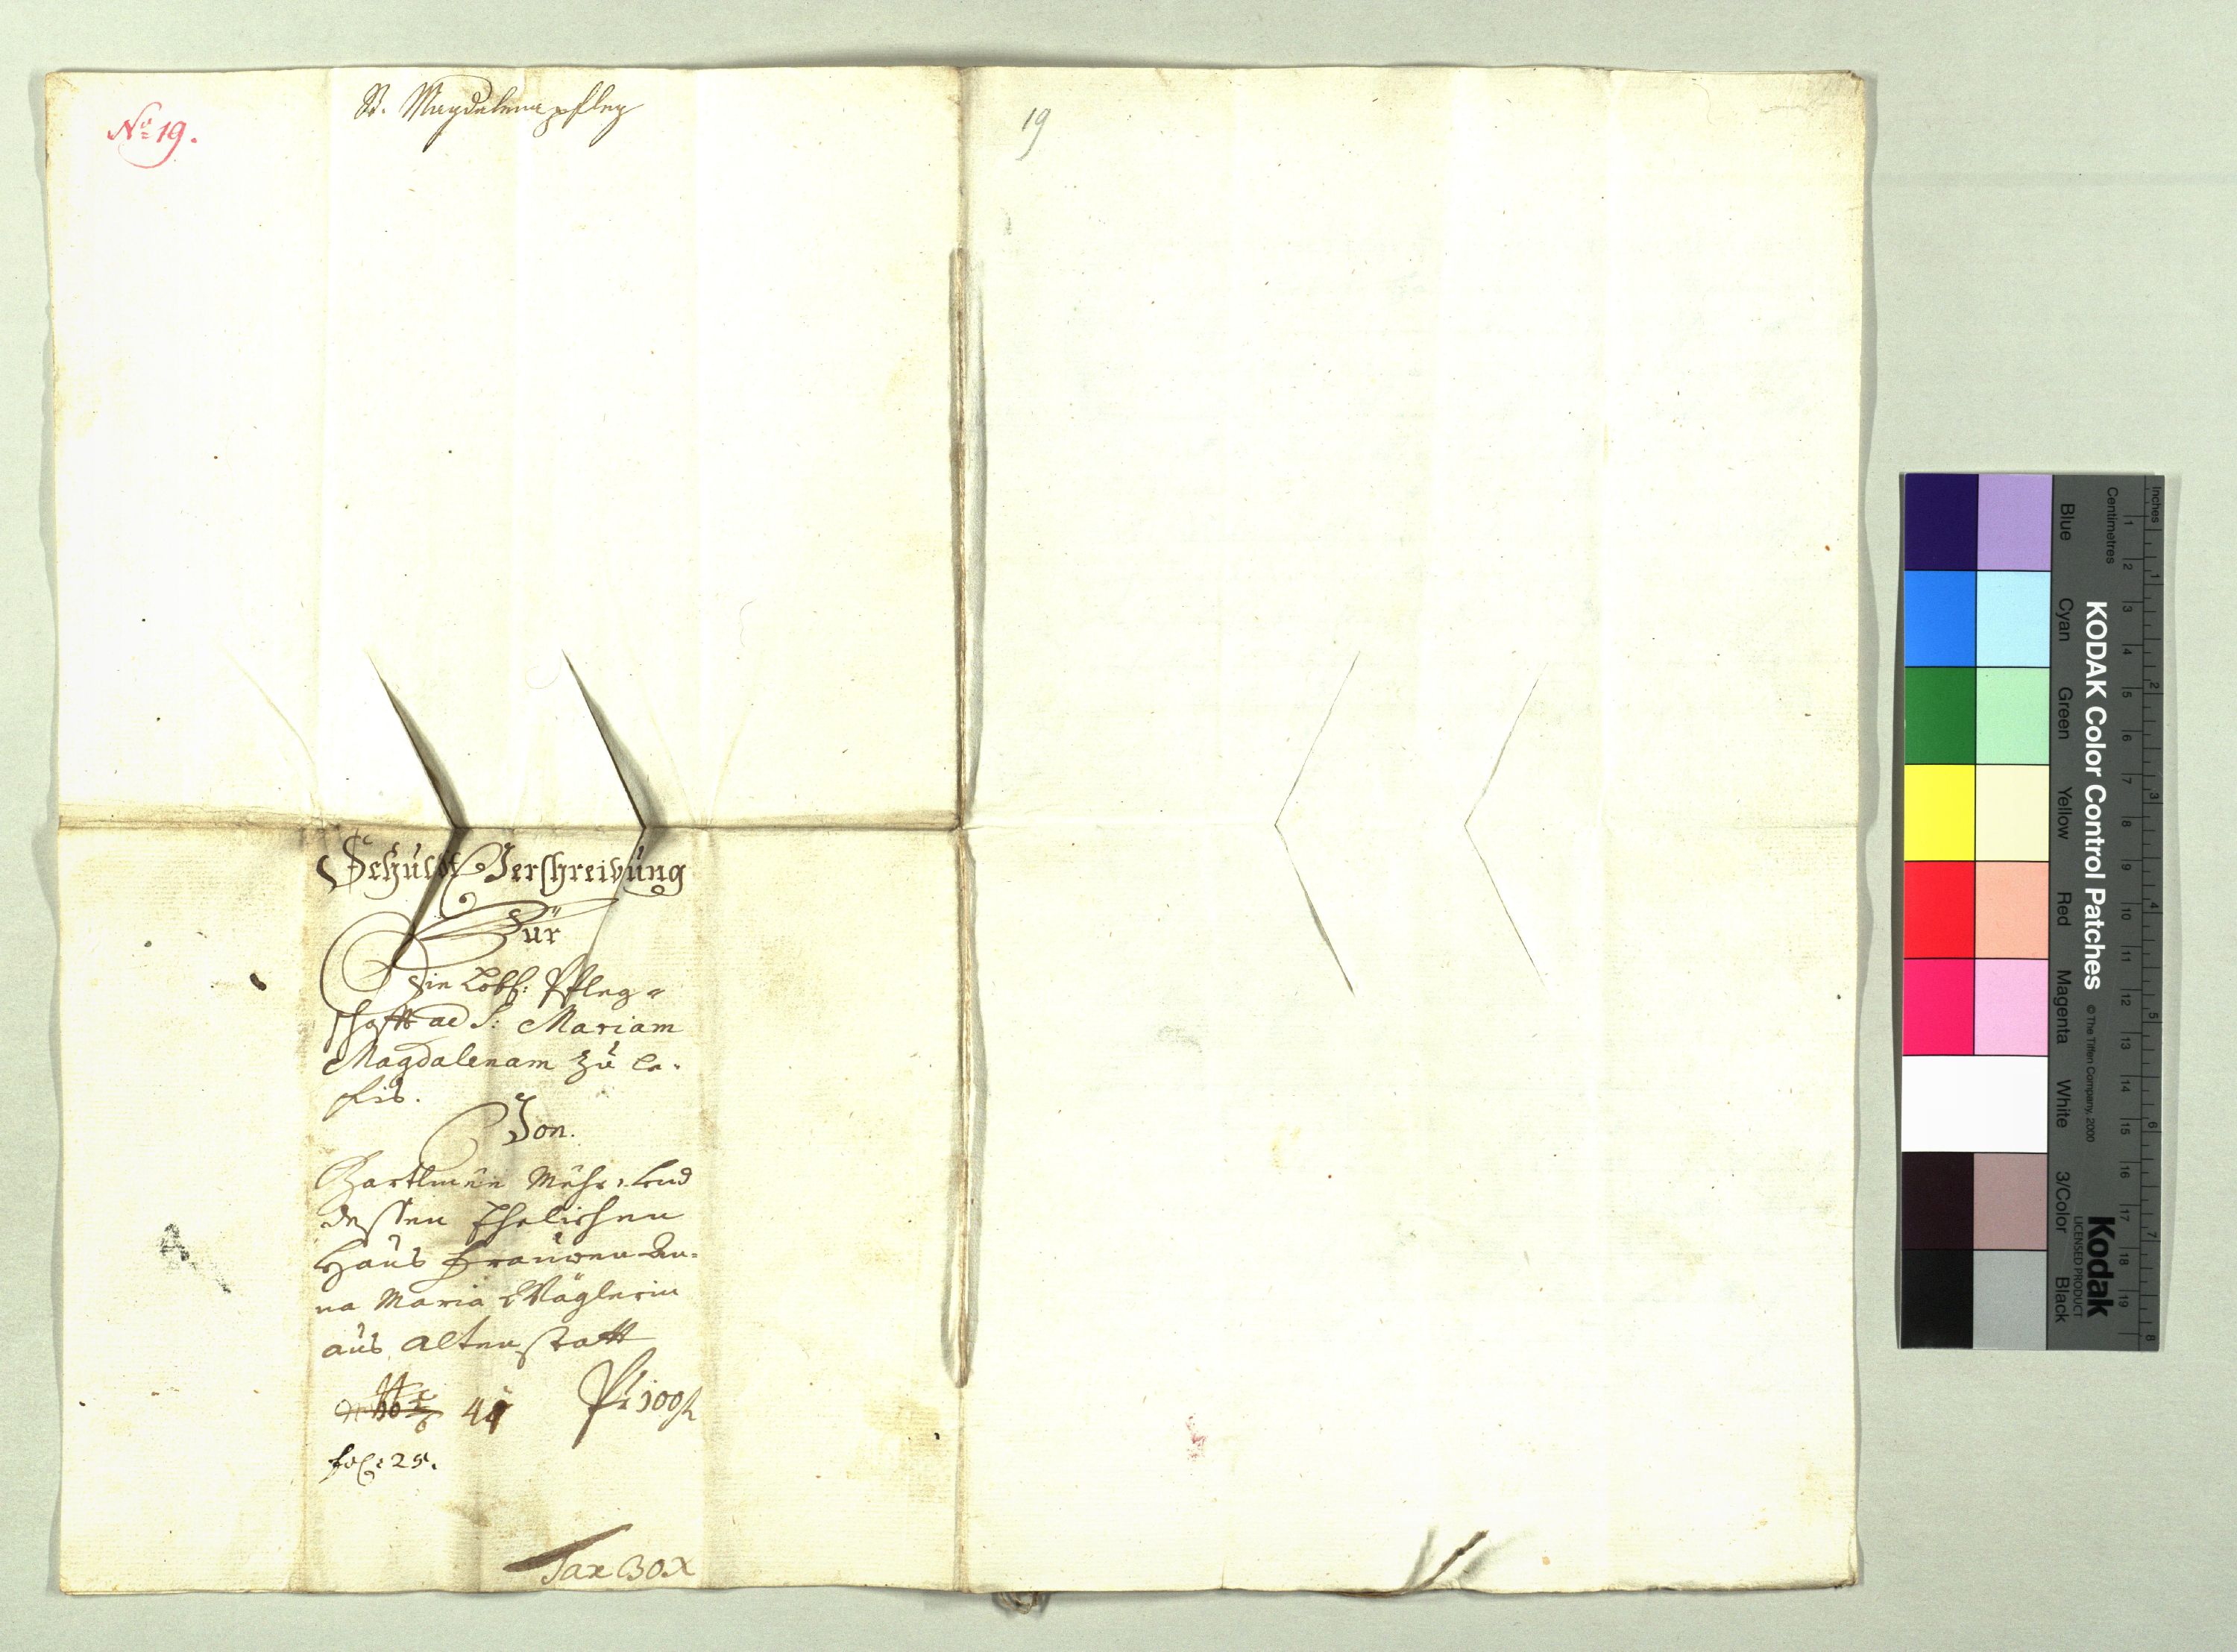 No 19.
St. Magdalena pfleg
19
Schuldt Verschreibung
Für
Die Löbl: Pfleg=
schafft ad S: Mariam
Magdalenam zu Le=
fis.
Von.
Bartlmee Mähr, und
dessen Ehelichen
Haus Frauwen An=
na Maria Väglerin
aus Altenstatt
Pr 100 fl
fol: 25.
Tax 30 x
Inches
Centimetres
1 2 3 4 5 6 7 8 9 10 11 12 13 14 15 16 17 18 19
1 2 3 4 5 6 7 8
KODAK Color Control Patches
© The Tiffen Company, 2000
Kodak
LICENSED PRODUCT
Blue Cyan Green Yellow Red Magenta White 3/Color Black